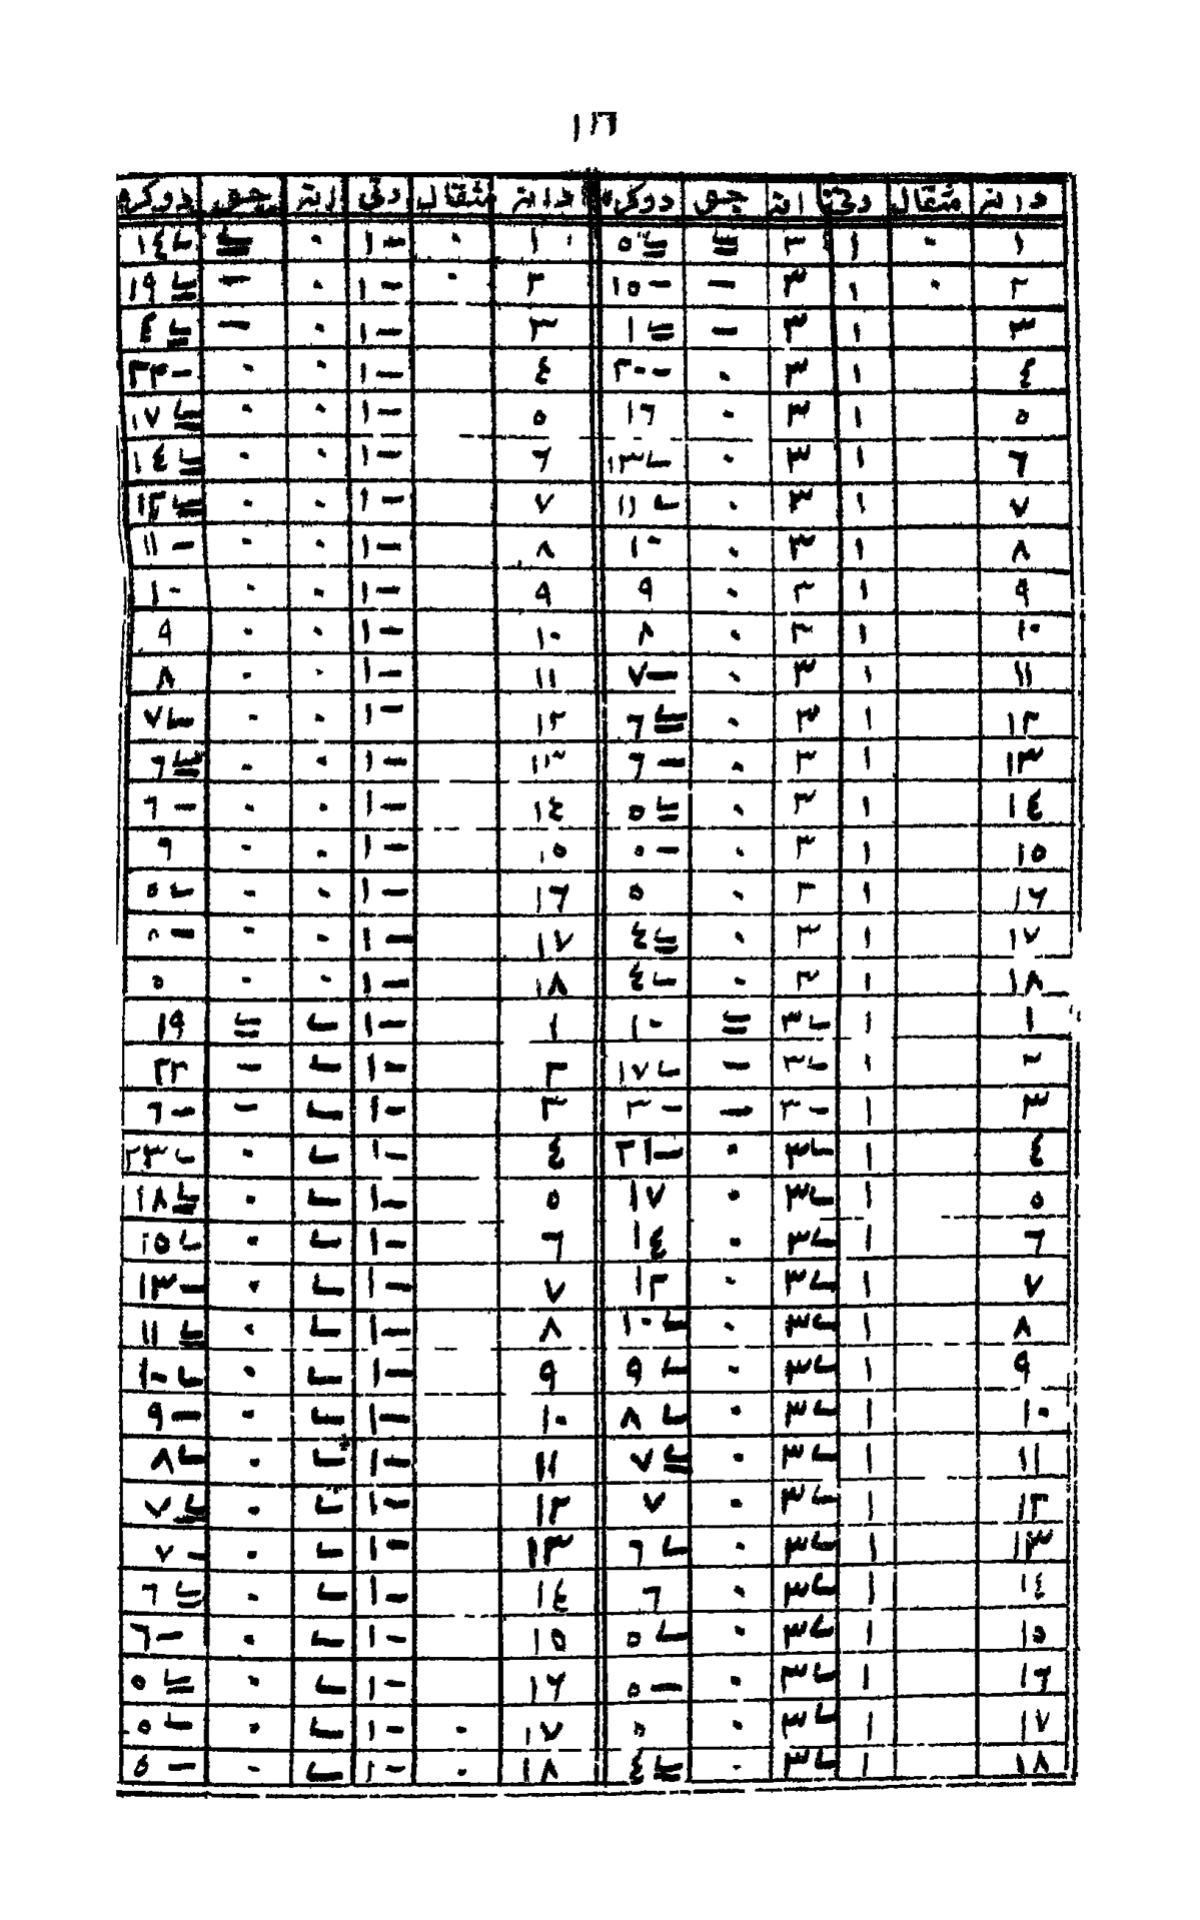 ١١٦
دانه مثقال رتي انه چو دوكره دانه مثقال رتي انه چو دوكره
١ ٠ ١ ٣ ٥ ١ ٠ —١ ٠ ١٤
٢ ٠ ١ ٣ — —١٥ ٢ ٠ —١ ٠ — ١٩
٣ ١ ٣ — ١ ٣ —١ ٠ — ٤
٤ ١ ٣ ٠ —٢٠ ٤ —١ ٠ ٠ —٢٣
٥ ١ ٣ ٠ ١٦ ٥ —١ ٠ ٠ ١٧
٦ ١ ٣ ٠ ١٣ ٦ —١ ٠ ٠ ١٤
٧ ١ ٣ ٠ ١١ ٧ —١ ٠ ٠ ١٢
٨ ١ ٣ ٠ ١٠ ٨ —١ ٠ ٠ —١١
٩ ١ ٣ ٠ ٩ ٩ —١ ٠ ٠ ١٠
١٠ ١ ٣ ٠ ٨ ١٠ —١ ٠ ٠ ٩
١١ ١ ٣ ٠ —٧ ١١ —١ ٠ ٠ ٨
١٢ ١ ٣ ٠ ٦ ١٢ —١ ٠ ٠ ٧
١٣ ١ ٣ ٠ —٦ ١٣ —١ ٠ ٠ ٦
١٤ ١ ٣ ٠ ٥ ١٤ —١ ٠ ٠ —٦
١٥ ١ ٣ ٠ —٥ ١٥ —١ ٠ ٠ ٦
١٦ ١ ٣ ٠ ٥ ١٦ —١ ٠ ٠ ٥
١٧ ١ ٣ ٠ ٤ ١٧ —١ ٠ ٠ —٥
١٨ ١ ٣ ٠ ٤ ١٨ —١ ٠ ٠ ٥
١ ١ ٣ ١٠ ١ —١ ١٩
٢ ١ ٣ — ١٧ ٢ —١ — ٢٢
٣ ١ ٣ — —٣ ٣ —١ — —٦
٤ ١ ٣ ٠ —٢١ ٤ —١ ٠ ٢٣
٥ ١ ٣ ٠ ١٧ ٥ —١ ٠ ١٨
٦ ١ ٣ ٠ ١٤ ٦ —١ ٠ ١٥
٧ ١ ٣ ٠ ١٢ ٧ —١ ٠ —١٣
٨ ١ ٣ ٠ ١٠ ٨ —١ ٠ ١١
٩ ١ ٣ ٠ ٩ ٩ —١ ٠ ١٠
١٠ ١ ٣ ٠ ٨ ١٠ —١ ٠ —٩
١١ ١ ٣ ٠ ٧ ١١ —١ ٠ ٨
١٢ ١ ٣ ٠ ٧ ١٢ —١ ٠ ٧
١٣ ١ ٣ ٠ ٦ ١٣ —١ ٠ —٧
١٤ ١ ٣ ٠ ٦ ١٤ —١ ٠ ٦
١٥ ١ ٣ ٠ ٥ ١٥ —١ ٠ —٦
١٦ ١ ٣ ٠ —٥ ١٦ —١ ٠ ٥
١٧ ١ ٣ ٠ ٥ ١٧ ٠ —١ ٠ ٥
١٨ ١ ٣ ٠ ٤ ١٨ ٠ —١ ٠ —٥